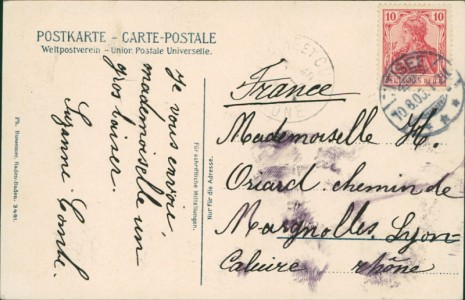 POSTKARTE - CARTE-POSTALE
Weltpostverein - Union Postale Universelle.
Je vous envoie
mademoiselle un
gros baiser.
Suzanne Combe.
Für schriftliche Mitteilungen.
Nur für die Adresse.
10 10
France
Mademoiselle H.
Oriard chemin de
Margnolles. Lyon-
Caluire rhône